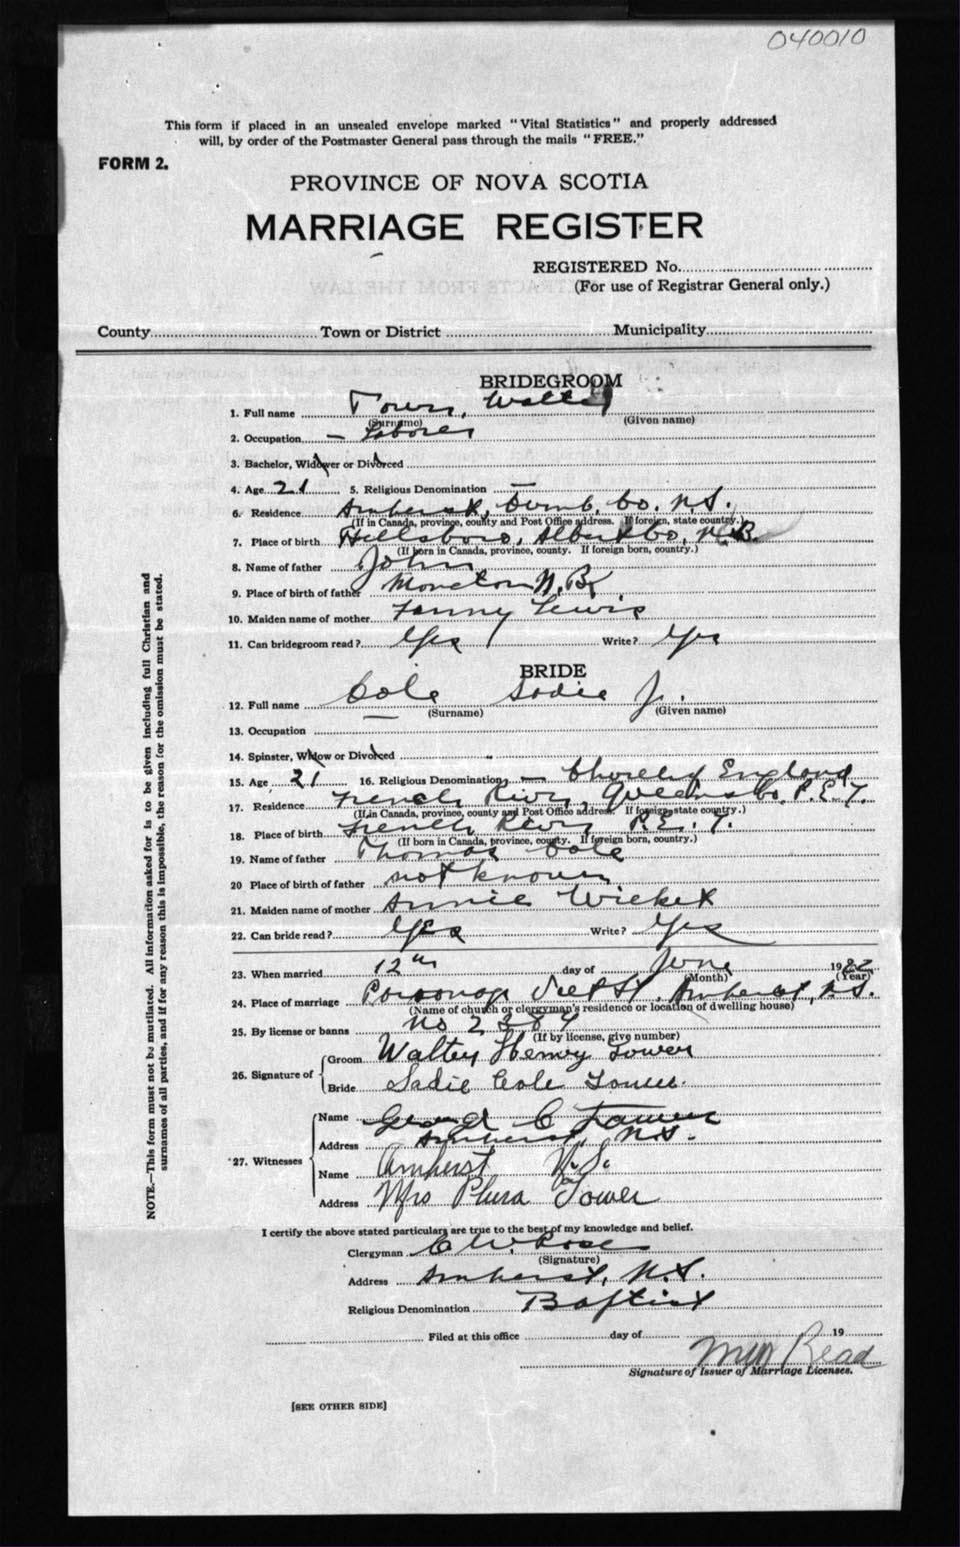 040010
This form if placed in an unsealed envelope marked "Vital Statistics" and properly addressed
will, by order of the Postmaster General pass through the mails "FREE."
FORM 2.
PROVINCE OF NOVA SCOTIA
MARRIAGE REGISTER
REGISTERED No.
(For use of Registrar General only.)
County Town or District Municipality
BRIDEGROOM
1. Full name Tower, Walter
(Surname) (Given name)
2. Occupation — Laborer
3. Bachelor, Widower or Divorced
4. Age 21 5. Religious Denomination —
6. Residence Amherst, Cumb. Co. N.S.
(If in Canada, province, county and Post Office address. If foreign, state country.)
7. Place of birth Hillsboro, Albert Co, N.B.
(If born in Canada, province, county. If foreign born, country.)
8. Name of father John
9. Place of birth of father Moncton N.B.
10. Maiden name of mother Fanny Lewis
11. Can bridegroom read? Yes Write? Yes
BRIDE
12. Full name Cole Sadie J.
(Surname) (Given name)
13. Occupation —
14. Spinster, Widow or Divorced
15. Age 21 16. Religious Denomination — Church of England
17. Residence French River, Queens Co. P.E.I.
(If in Canada, province, county and Post Office address. If foreign, state country.)
18. Place of birth French River P.E.I.
(If born in Canada, province, county. If foreign born, country.)
19. Name of father Thomas Cole
20 Place of birth of father not known
21. Maiden name of mother Annie
22. Can bride read? Yes Write? Yes
23. When married 12th day of June 1922
(Month) (Year)
24. Place of marriage Parsonage St, Amherst, N.S.
(Name of church or clergyman's residence or location of dwelling house)
25. By license or banns No 2384
(If by license, give number)
26. Signature of Groom Walter Henry Tower
Bride Sadie Cole Tower
27. Witnesses Name C Tower
Address Amherst, N.S.
Name Amherst N.S.
Address Mrs Tower
I certify the above stated particulars are true to the best of my knowledge and belief.
Clergyman C W. Rose
(Signature)
Address Amherst, N.S.
Religious Denomination Baptist
Filed at this office day of 19
Read
Signature of Issuer of Marriage Licenses.
[SEE OTHER SIDE]
NOTE.—This form must not be mutilated. All information asked for is to be given including full Christian and
surnames of all parties, and if for any reason this is impossible, the reason for the omission must be stated.